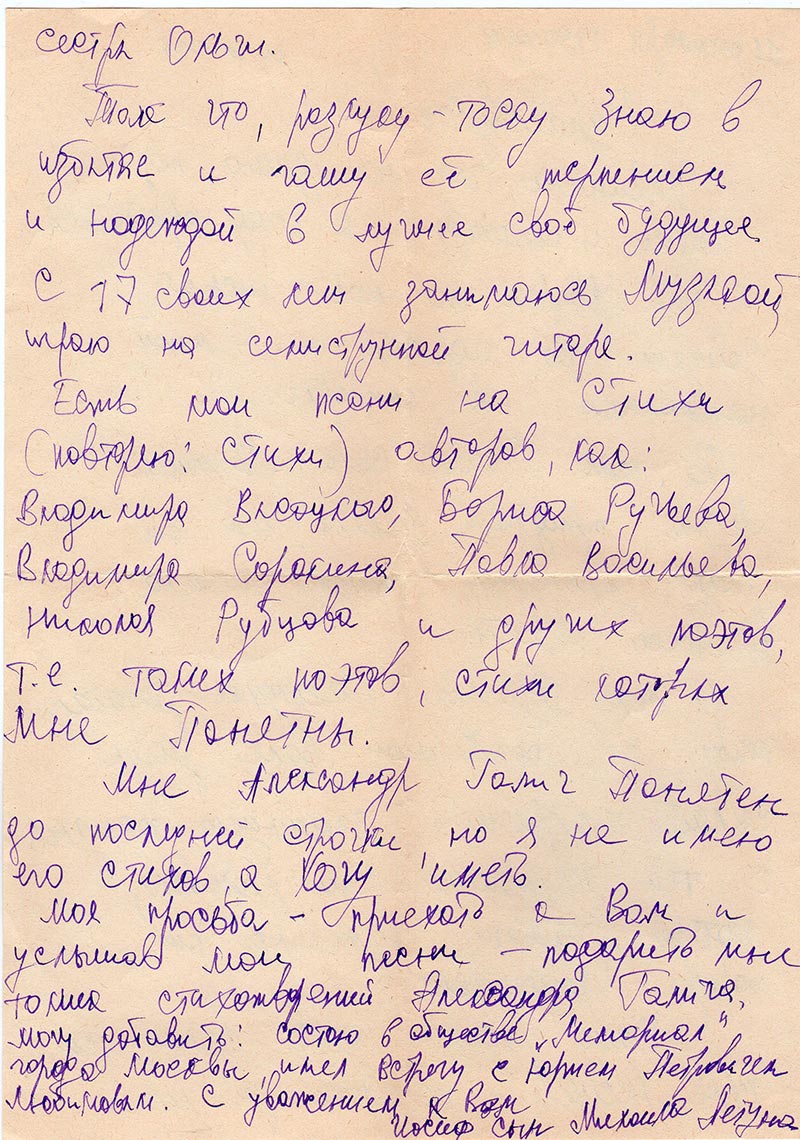 сестры Ольги.
Так что, разлуку-тоску знаю в
избытке и гашу её терпением
и надеждой в лучшее своё будущее
С 17 своих лет занимаюсь Музыкой,
играю на семиструнной гитаре.
Есть мои песни на Стихи
(повторю: стихи) авторов, как:
Владимира Высоцкого, Бориса Ручьева,
Владимира Сорокина, Павла Васильева,
Николая Рубцова и других поэтов,
т.е. таких поэтов, стихи которых
Мне Понятны.
Мне Александр Галич Понятен
до последней строчки, но я не имею
его стихов, а Хочу иметь.
Моя просьба – приехать к Вам и
услышав мои песни – подарить мне
томик стихотворений Александра Галича,
могу добавить: состою в обществе „Мемориал"
города Москвы, имел встречу с Юрием Петровичем
Любимовым. С уважением к Вам
Иосиф сын Михаила